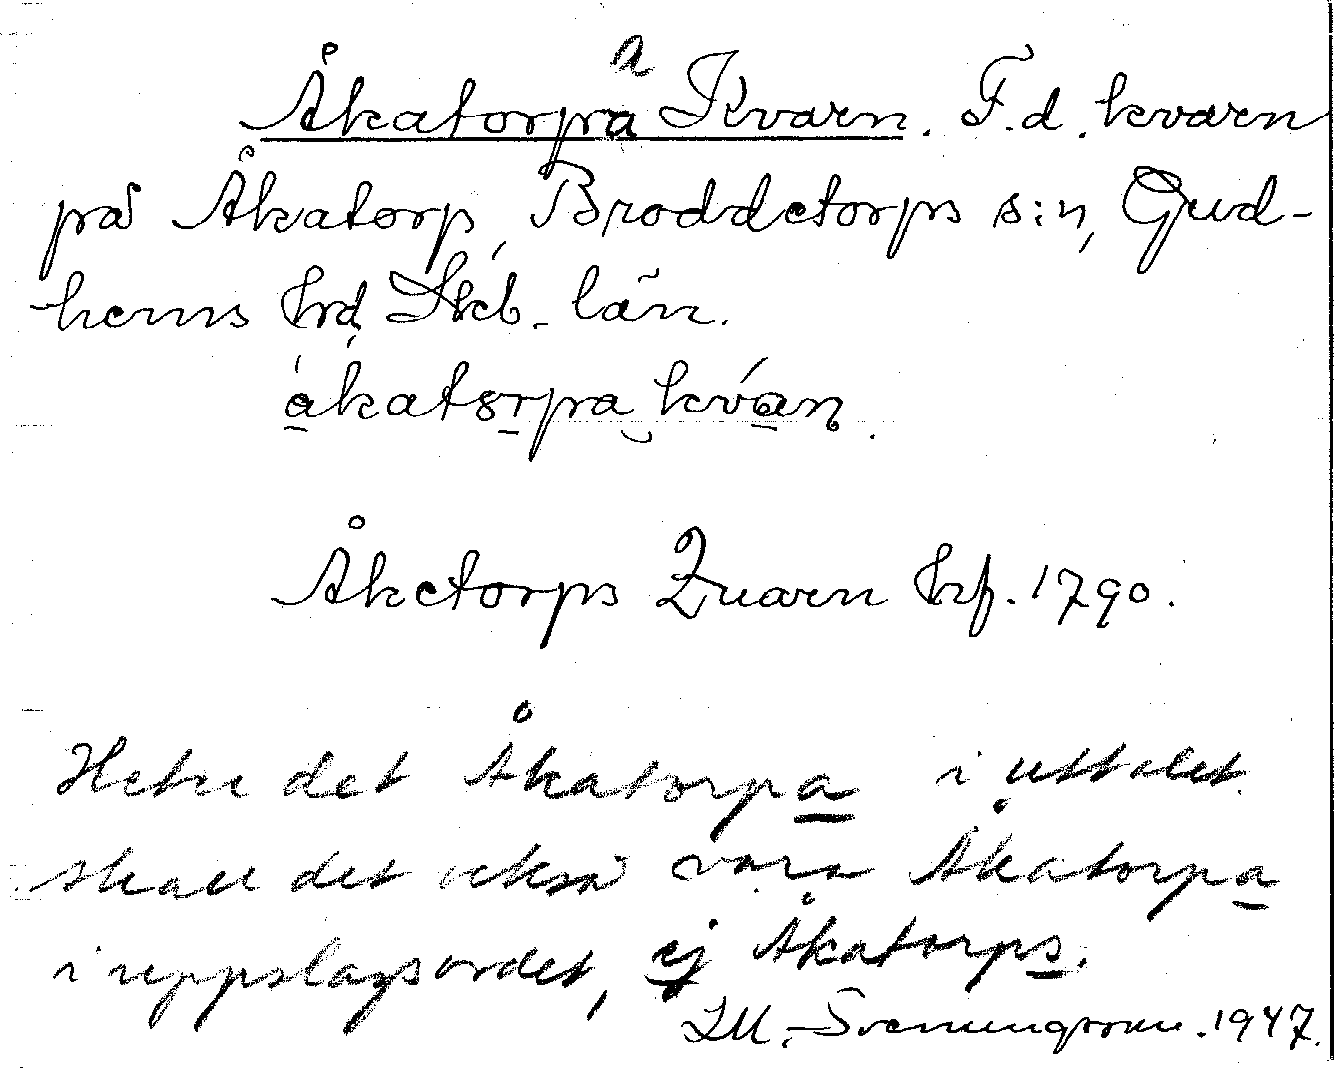 Åkatorpa Kvarn. F.d. kvarn
på Åkatorp, Broddetorps s:n, Gud-
hems hrd, Skb. län.
åkatorpa kván.
Åketorps Quarn hf. 1790.
Heter det Åkatorpa i uttalet
skall det också vara Åkatorpa
i uppslagsordet, ej Åkatorps.
1947.